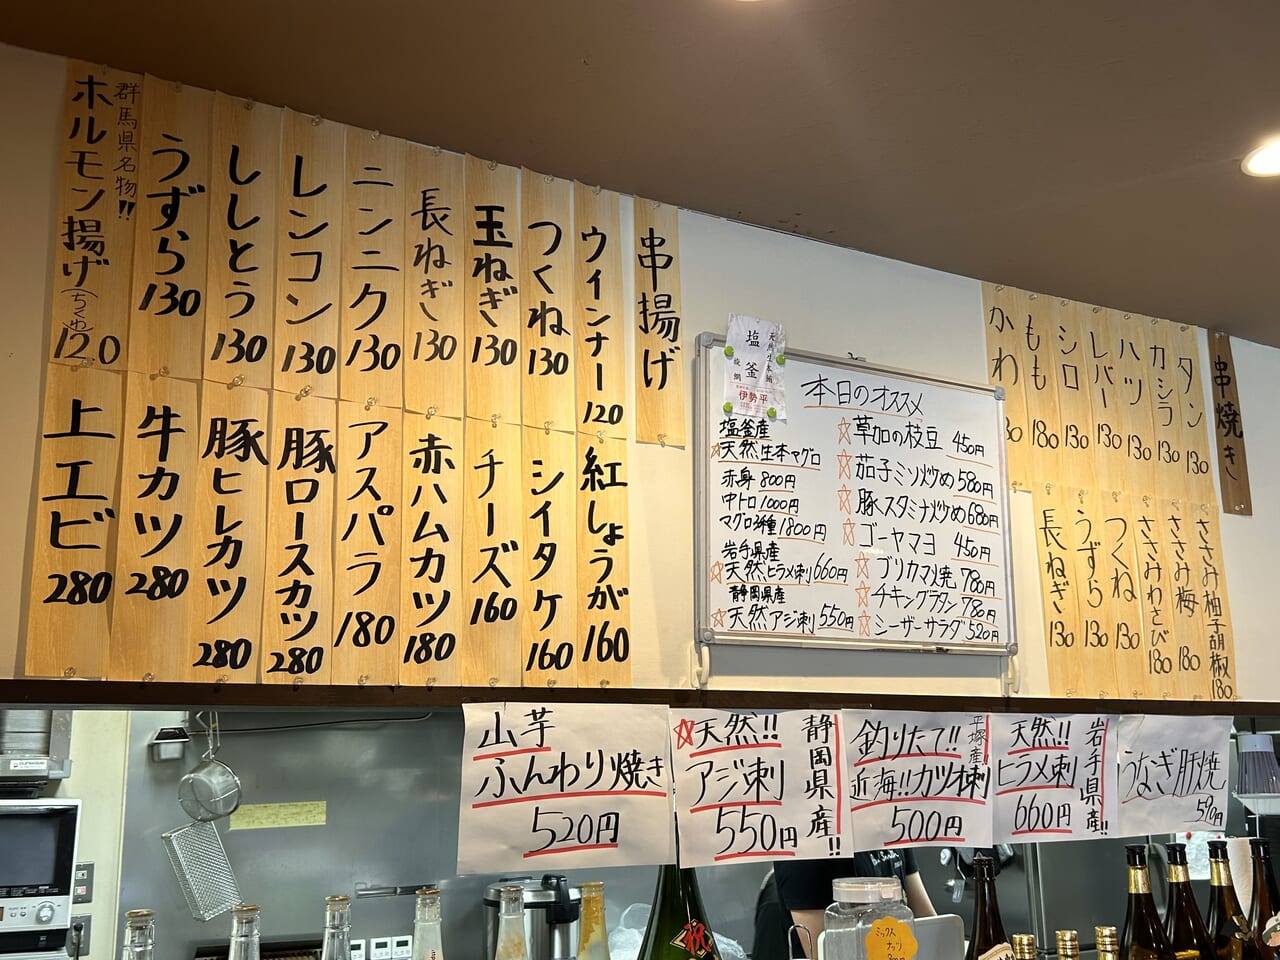 串揚げ
ウインナー 120
つくね 130
玉ねぎ 130
長ねぎ 130
ニンニク 130
レンコン 130
ししとう 130
うずら 130
群馬県名物!!
ホルモン揚げ(ちくわ) 120
紅しょうが 160
シイタケ 160
チーズ 160
赤ハムカツ 180
アスパラ 180
豚ロースカツ 280
豚ヒレカツ 280
牛カツ 280
上エビ 280
天然生本鮪
塩釜
伊勢平
本日のオススメ
塩釜産
☆天然生本マグロ
赤身 800円
中トロ 1000円
マグロ3種 1800円
岩手県産
☆天然ヒラメ刺 660円
静岡県産
☆天然アジ刺 550円
☆草加の枝豆 450円
☆茄子ミソ炒め 580円
☆豚スタミナ炒め 680円
☆ゴーヤマヨ 450円
☆ブリカマ焼 780円
☆チキングラタン 780円
☆シーザーサラダ 520円
串焼き
タン 130
カシラ 130
ハツ 130
レバー 130
シロ 130
もも 180
かわ
ささみ柚子胡椒 180
ささみ梅 180
ささみわさび 180
つくね 130
うずら 130
長ねぎ 130
山芋
ふんわり焼き
520円
静岡県産!!
☆天然!!
アジ刺
550円
平塚産!!
釣りたて!!
近海!!カツオ刺
500円
岩手県産!!
天然!!
ヒラメ刺
660円
うなぎ肝焼
590円
祝
ミックス
ナッツ
300円